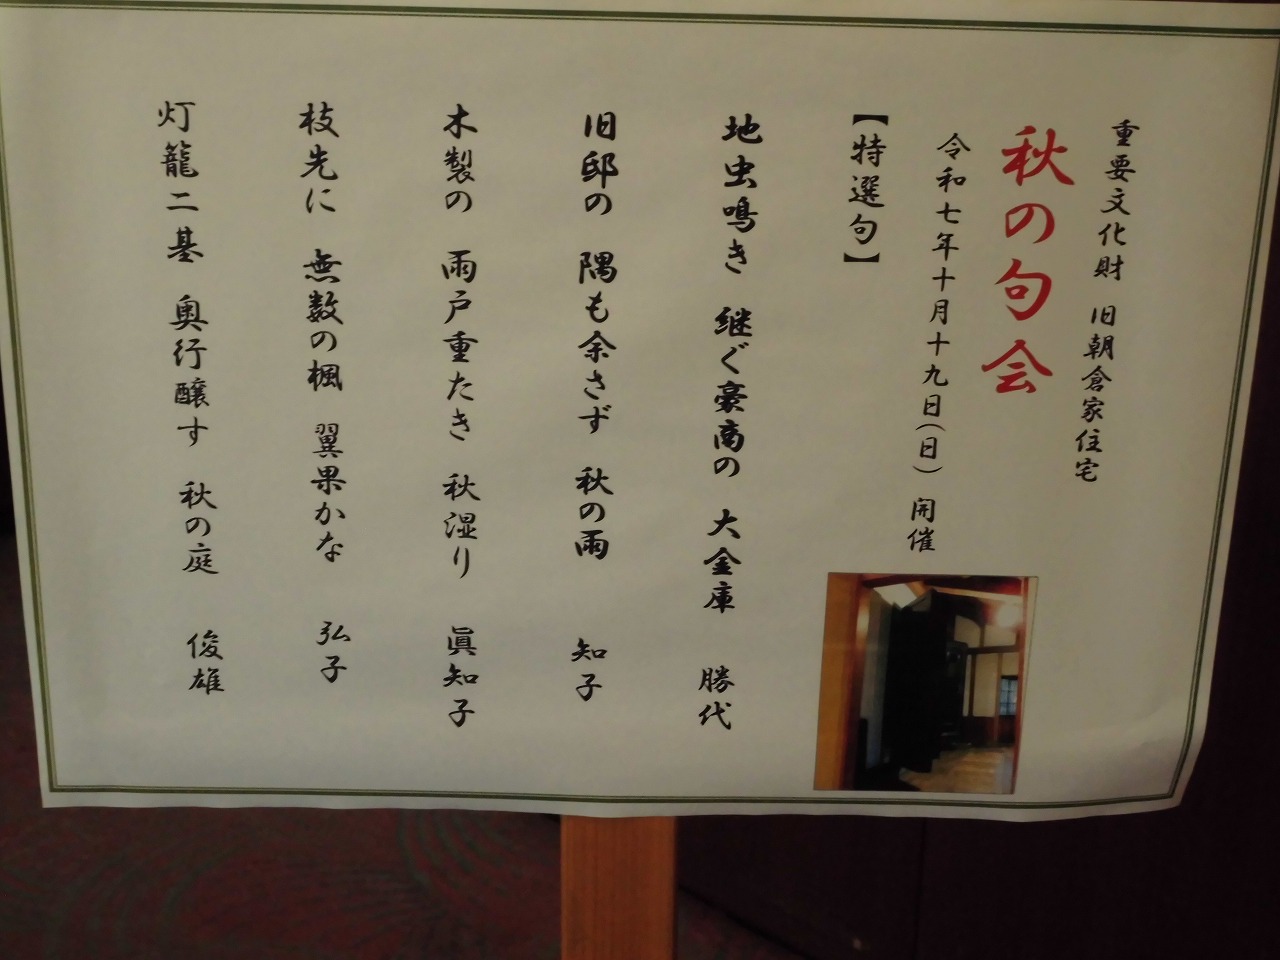 重要文化財 旧朝倉家住宅
秋の句会
令和七年十月十九日(日) 開催
【特選句】
地虫鳴き 継ぐ豪商の 大金庫 勝代
旧邸の 隅も余さず 秋の雨 知子
木製の 雨戸重たき 秋湿り 眞知子
枝先に 無数の楓 翼果かな 弘子
灯籠二基 奥行醸す 秋の庭 俊雄